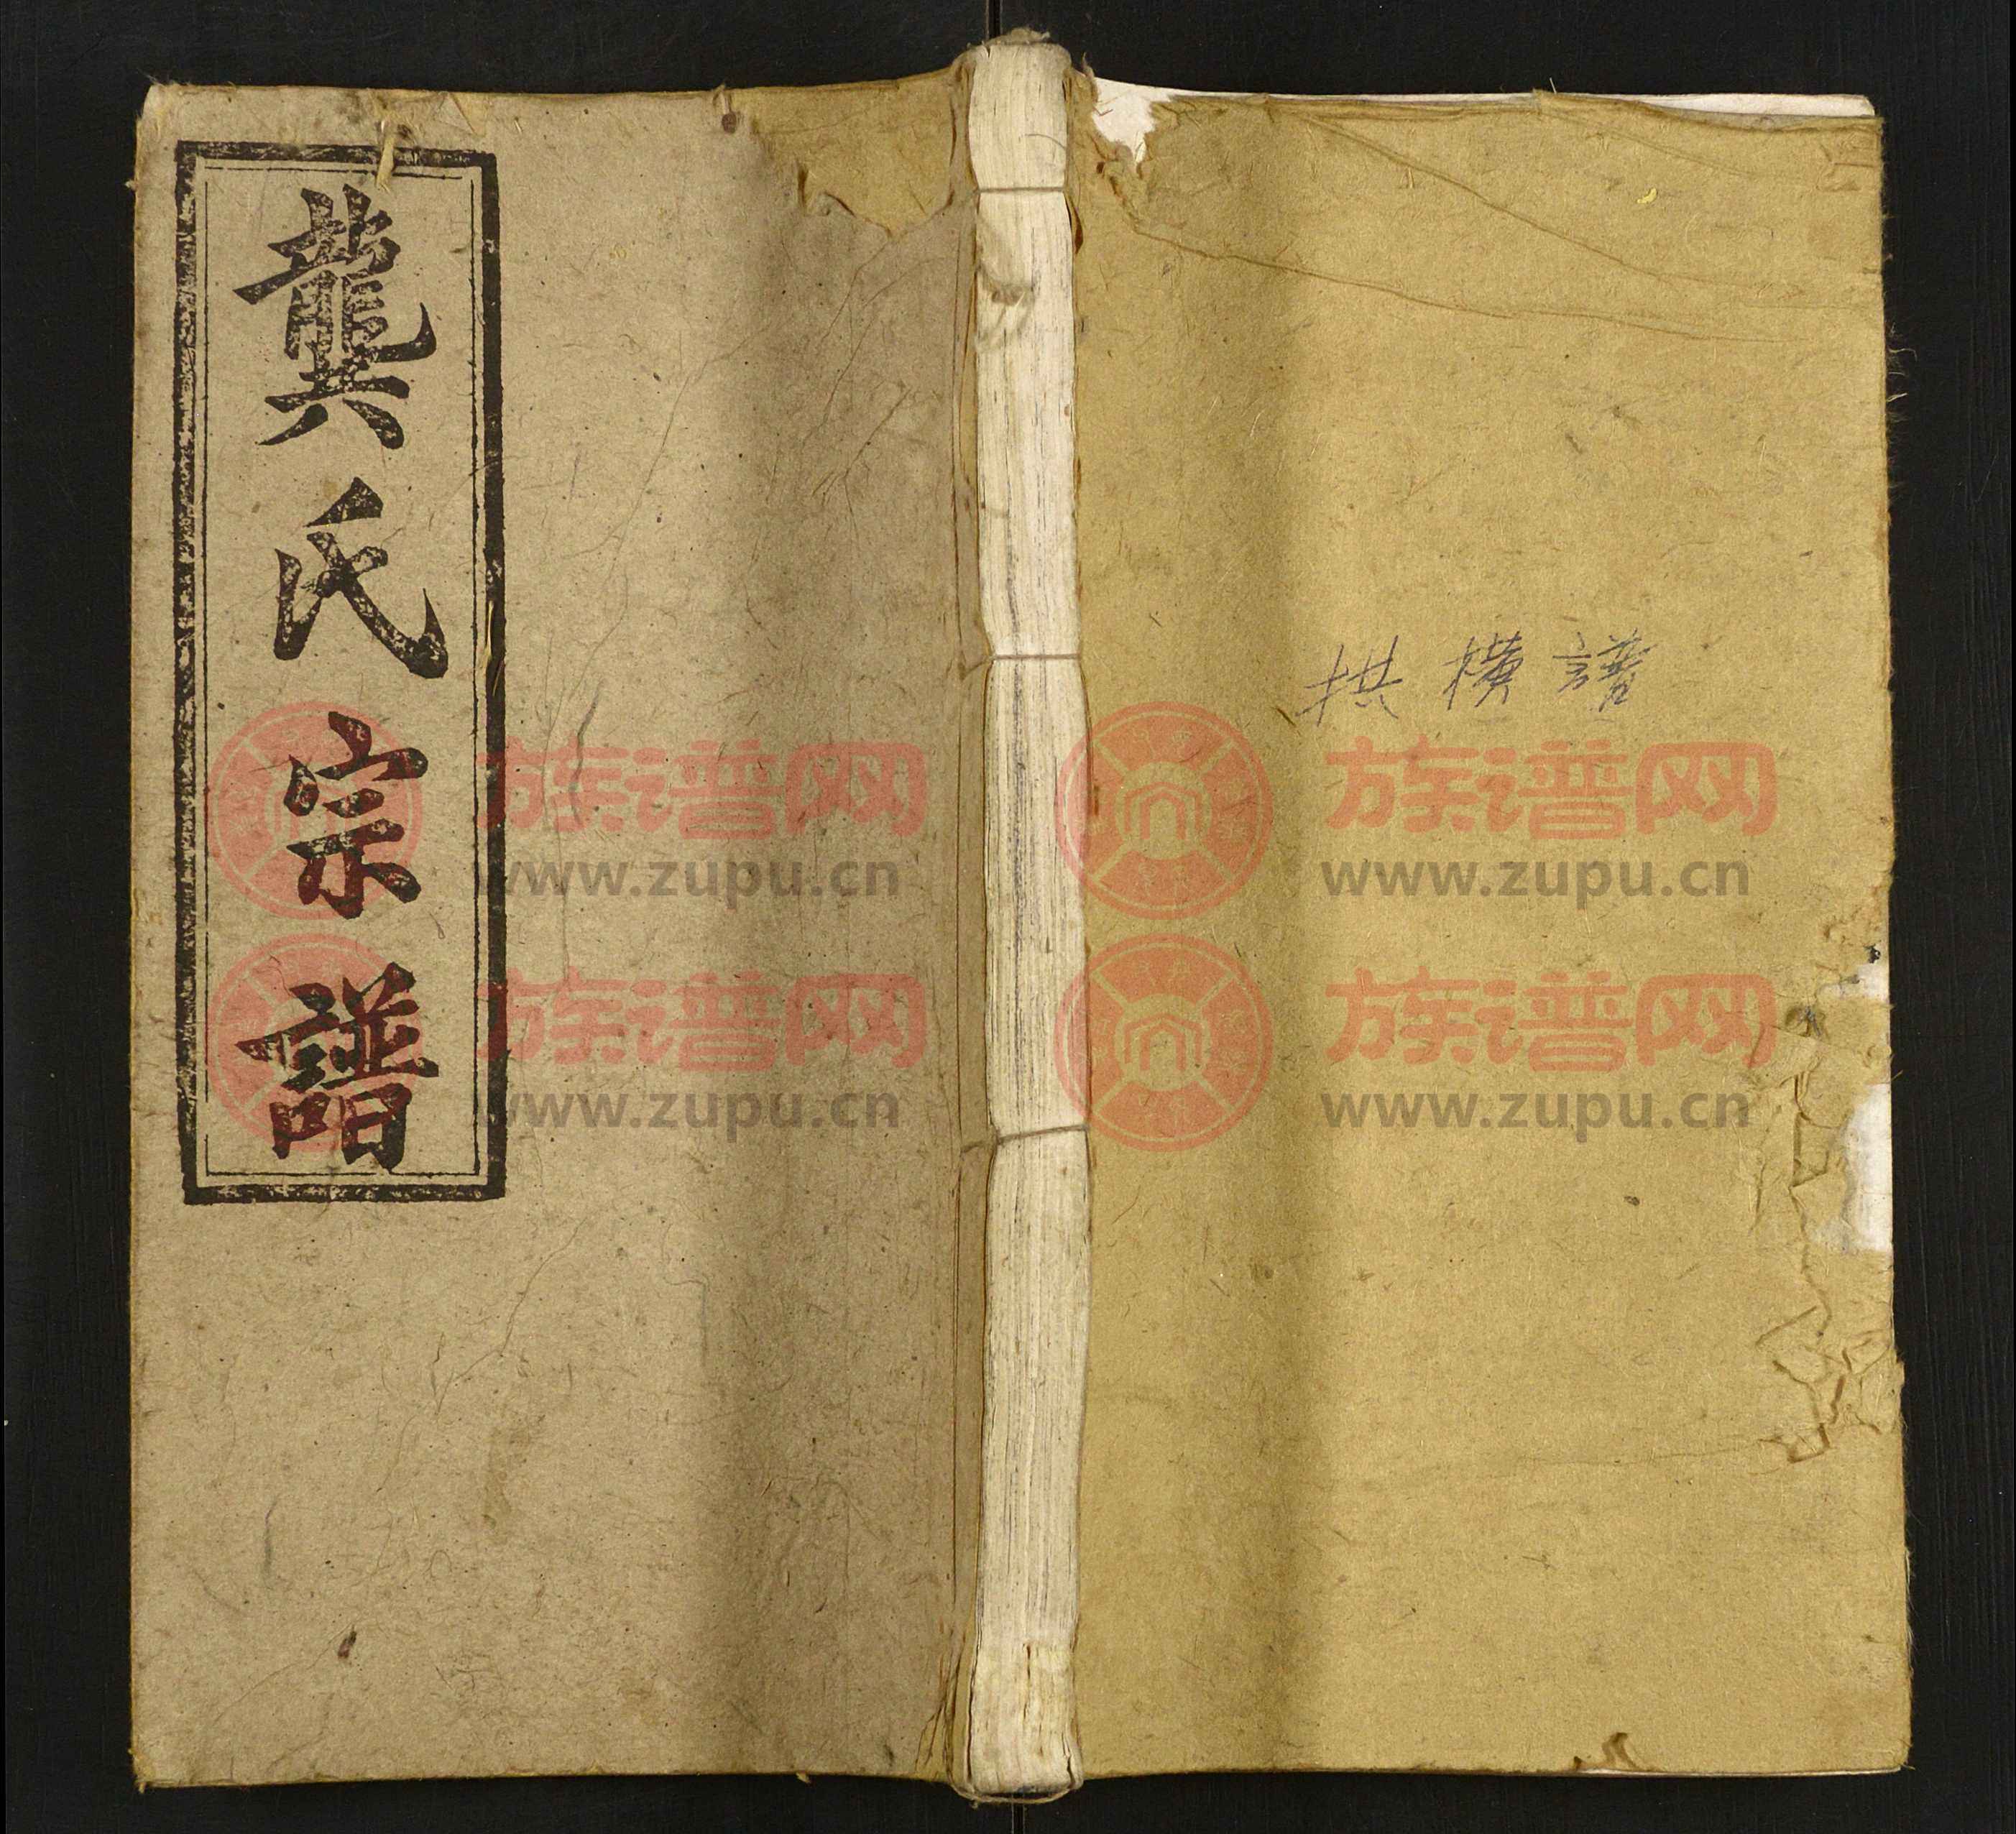 龔氏宗譜
拱橫譜
族谱网 族谱网
www.zupu.cn www.zupu.cn
族谱网 族谱网
www.zupu.cn www.zupu.cn